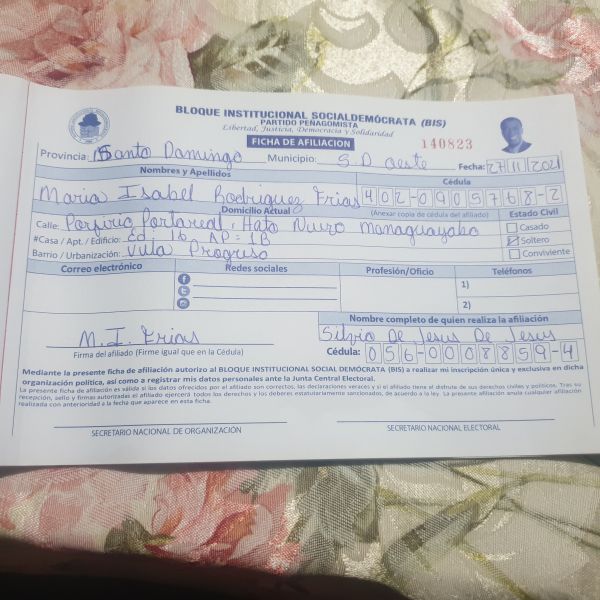 BLOQUE INSTITUCIONAL SOCIALDEMÓCRATA (BIS)
PARTIDO PEÑAGOMISTA
Libertad, Justicia, Democracia y Solidaridad
FICHA DE AFILIACION
140823
Provincia: Santo Domingo Municipio: S.D. oeste Fecha: 27/11/2021
Nombres y Apellidos Cédula
Maria Isabel Rodriguez Frias 402-0905768-2
Domicilio Actual (Anexar copia de cédula del afiliado) Estado Civil
Calle: Porfirio Portareal, Hato Nuevo Managuayabo Casado
#Casa / Apt. / Edificio: Ed. 16 AP: 1B Soltero
Barrio / Urbanización: Villa Progreso Conviviente
Correo electrónico Redes sociales Profesión/Oficio Teléfonos
1)
2)
Nombre completo de quien realiza la afiliación
M.I. Frias Silvio De Jesus De Jesus
Firma del afiliado (Firme igual que en la Cédula) Cédula: 056-0008859-4
Mediante la presente ficha de afiliación autorizo al BLOQUE INSTITUCIONAL SOCIAL DEMÓCRATA (BIS) a realizar mi inscripción única y exclusiva en dicha
organización política, así como a registrar mis datos personales ante la Junta Central Electoral.
La presente ficha de afiliación es válida si los datos ofrecidos por el afiliado son correctos, las declaraciones veraces y si el afiliado tiene el disfrute de sus derechos civiles y políticos. Tras su
recepción, sello y firmas autorizadas el afiliado ejercerá todos los derechos y los deberes estatutariamente sancionados, de acuerdo a la ley. La presente afiliación anula cualquier afiliación
realizada con anterioridad a la fecha que aparece en esta ficha.
SECRETARIO NACIONAL DE ORGANIZACIÓN SECRETARIO NACIONAL ELECTORAL